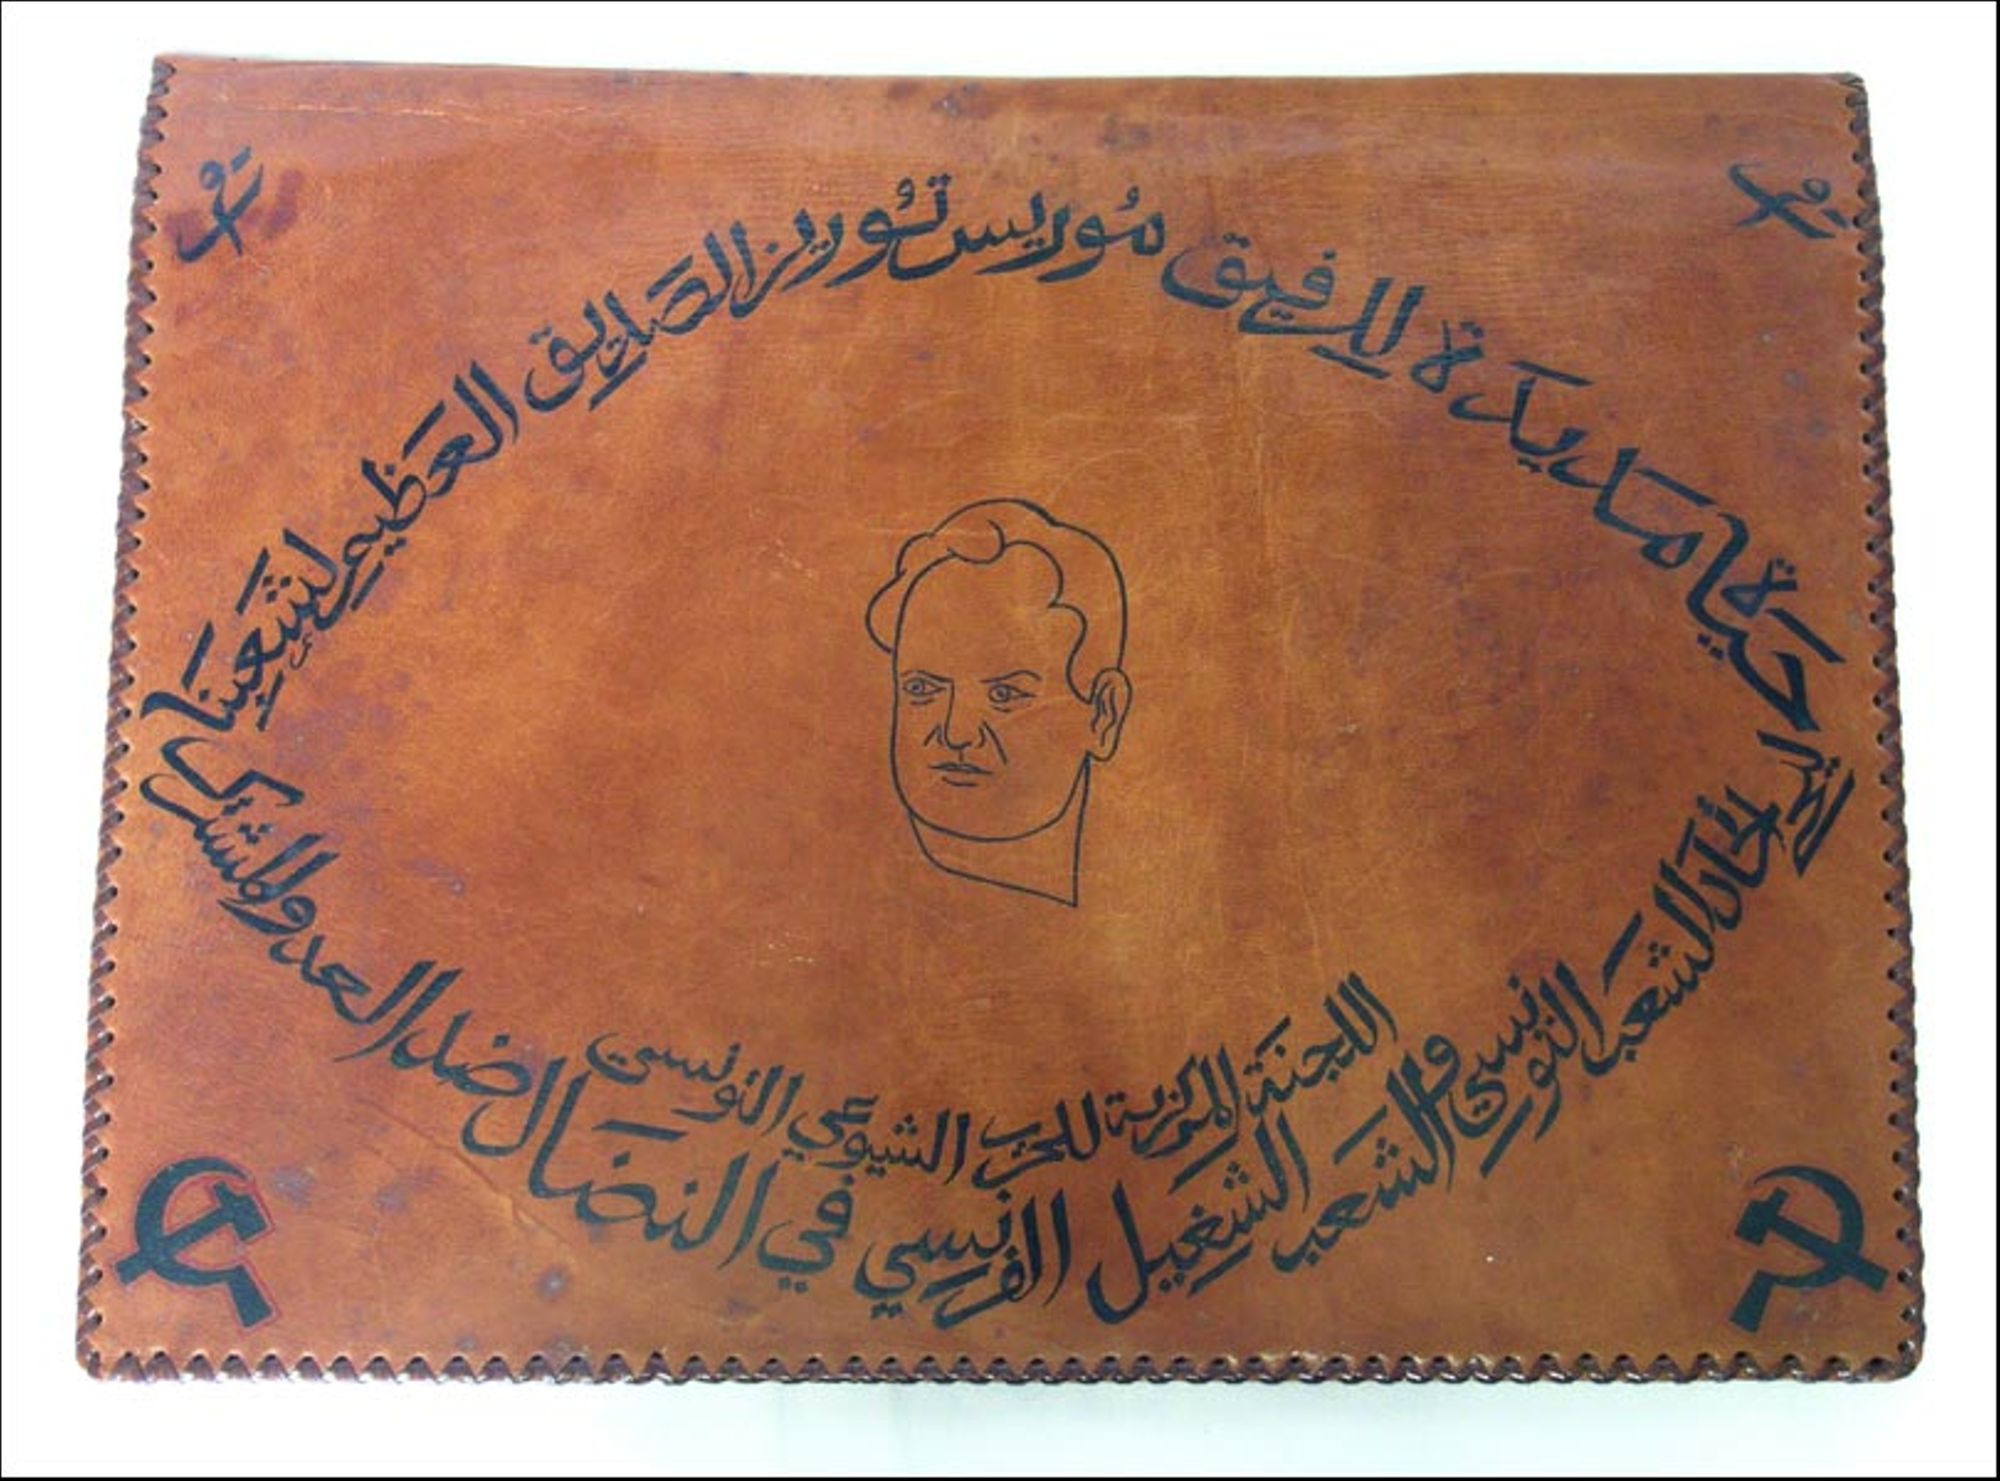 حياة مديدة للرفيق مُوريس تُوريز الصديق العظيم لشعبنا
ليحي اتحاد الشعب التونسي والشعب الشغيل الفرنسي في النضال ضد العدو المشترك
اللجنة المركزية للحزب الشيوعي التونسي